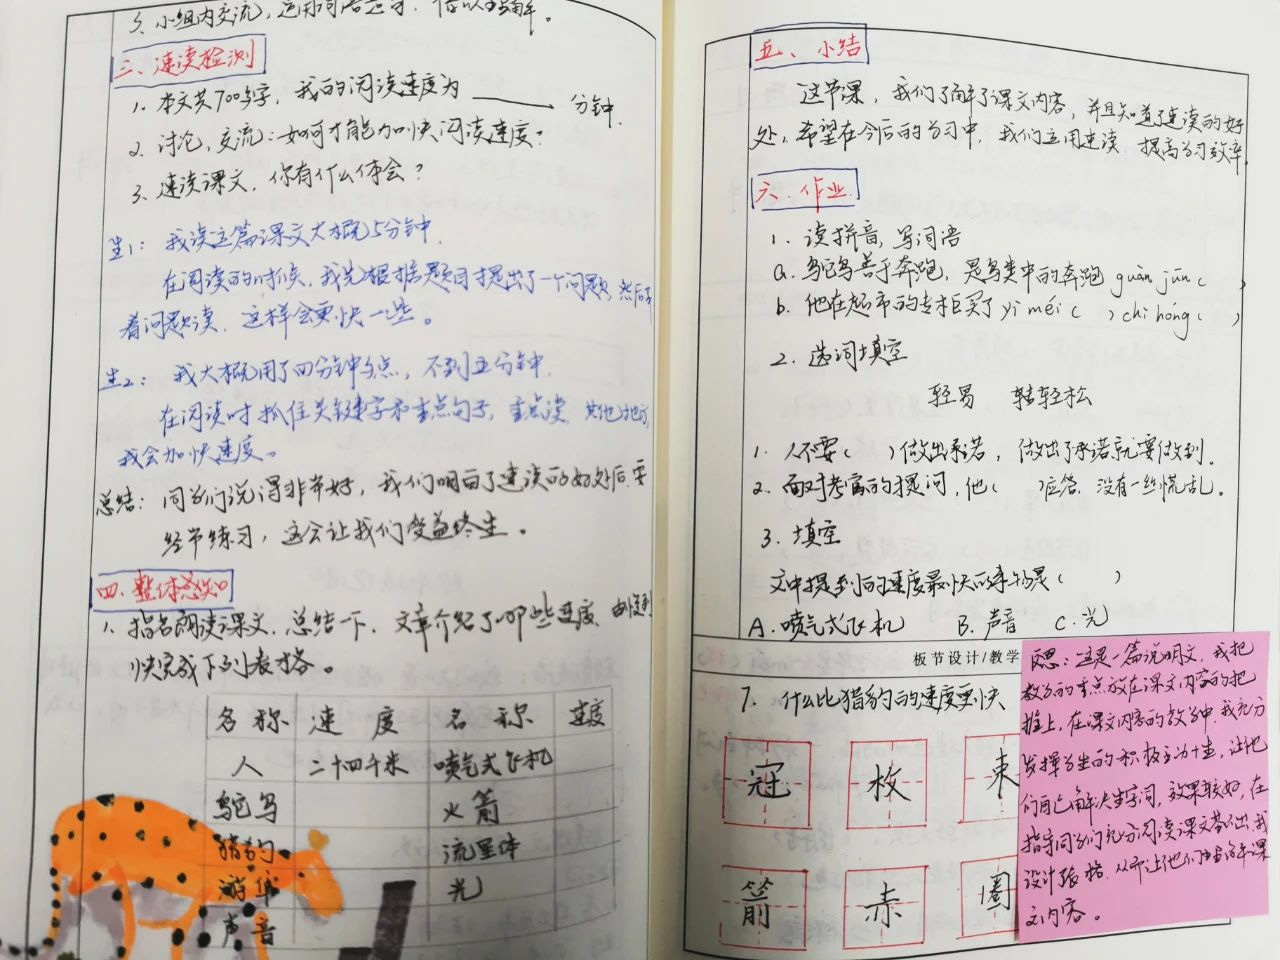 3、小组内交流，
三、速读检测
1. 本文共700多字，我的阅读速度为______分钟.
2. 讨论，交流：如何才能加快阅读速度？
3、速读课文，你有什么体会？
生1：我读这篇课文大概5分钟.
在阅读的时候，我先根据题目提出了一个问题，然后带
着问题读，这样会更快一些。
生2：我大概用了四分钟多点，不到五分钟.
在阅读时抓住关键字和重点句子，重点读，其他地方，
我会加快速度。
总结：同学们说得非常好，我们明白了速读的好处后，要
经常练习，这会让我们受益终生。
四、整体感知
1、指名朗读课文，总结一下，文章介绍了哪些速度，由慢到
快完成下列表格。
名称 速度 名称 速度
人 二十四千米 喷气式飞机
鸵鸟 火箭
猎豹 流星体
游隼 光
声音
五、小结
这节课，我们了解了课文内容，并且知道了速读的好
处，希望在今后的学习中，我们应用速读，提高学习效率.
六、作业
1、读拼音，写词语
a. 鸵鸟善于奔跑，是鸟类中的奔跑 guàn jūn（ ）
b. 他在超市的专柜买了yì méi（ ）chì hóng（ ）
2、选词填空
轻易 轻松
1、人不要（ ）做出承诺，做出了承诺就要做到.
2、面对考官的提问，他（ ）应答，没有一丝慌乱。
3、填空
文中提到的速度最快的事物是（ ）
A. 喷气式飞机 B. 声音 C. 光
板书设计/教学
7、什么比猎豹的速度更快
冠 枚
箭 赤 圈
反思：这是一篇说明文，我把
教学的重点放在课文内容的把
握上，在课文内容的教学中，我充分
发挥学生的积极主动性，让他
们自己解决生字词，效果较好，在
指导同学们充分阅读课文基础上，我
设计表格，从而让他们理解课
文内容。